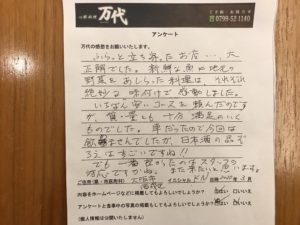 万代
ご予約・お問合せ
0799-52-1140
アンケート
万代の感想をお願いいたします。
ふらっと立ち寄ったお店…大
正解でした。新鮮な魚に地元の
野菜をあしらった料理は、それぞれ
絶妙な味付けで感動しました。
いちばん安いコースを頼んだのです
が、質・量とも十分満足のいく
ものでした。車だったので今回は
飲めませんでしたが、日本酒の品ぞ
ろえはすごいですね!!
でも一番良かったのはスタッフの
対応ですかね。また来たいと思います。
ご住所(県・市区町村) 大阪府 イニシャル K.N 日時 年 3月
内容をホームページなどに掲載してもよろしいでしょうか? はい いいえ
アンケートと食事中の写真の掲載をしてもよろしいでしょうか? はい いいえ
(個人情報は公開いたしません)